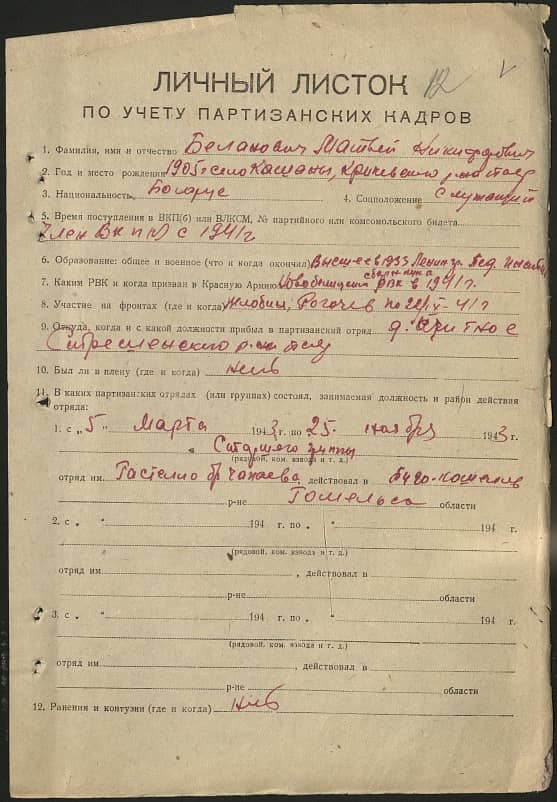 12 V
ЛИЧНЫЙ ЛИСТОК
ПО УЧЕТУ ПАРТИЗАНСКИХ КАДРОВ
1. Фамилия, имя и отчество Беланович Матвей Никифорович
2. Год и место рождения 1905 г село
3. Национальность Белорус 4. Соцположение Служащий
5. Время поступления в ВКП(б) или ВЛКСМ, № партийного или комсомольского билета
Член ВКП(б) с 1941 г
6. Образование: общее и военное (что и когда окончил) Высшее в 1935 Ленингр. Пед. Институт
7. Каким РВК и когда призван в Красную Армию Новобелицким РВК в 1941 г.
8. Участие на фронтах (где и когда) Жлобин, Рогачев по
9. Откуда, когда и с какой должности прибыл в партизанский отряд д.
10. Был ли в плену (где и когда) нет
11. В каких партизанских отрядах (или группах) состоял, занимаемая должность и район действия
отряда:
1. с „5 " Марта 1943 г. по 25 ноября 1943 г.
(рядовой, ком. взвода и т. д.)
отряд им. Гастелло бр Чапаева, действовал в Буда-Кошелев
р-не Гомельск области
2. с „ " 194 г. по „ " 194 г.
(рядовой, ком. взвода и т. д.)
отряд им. , действовал в
р-не области
3. с „ " 194 г. по „ " 194 г.
(рядовой, ком. взвода и т. д.)
отряд им. , действовал в
р-не области
12. Ранения и контузии (где и когда) нет